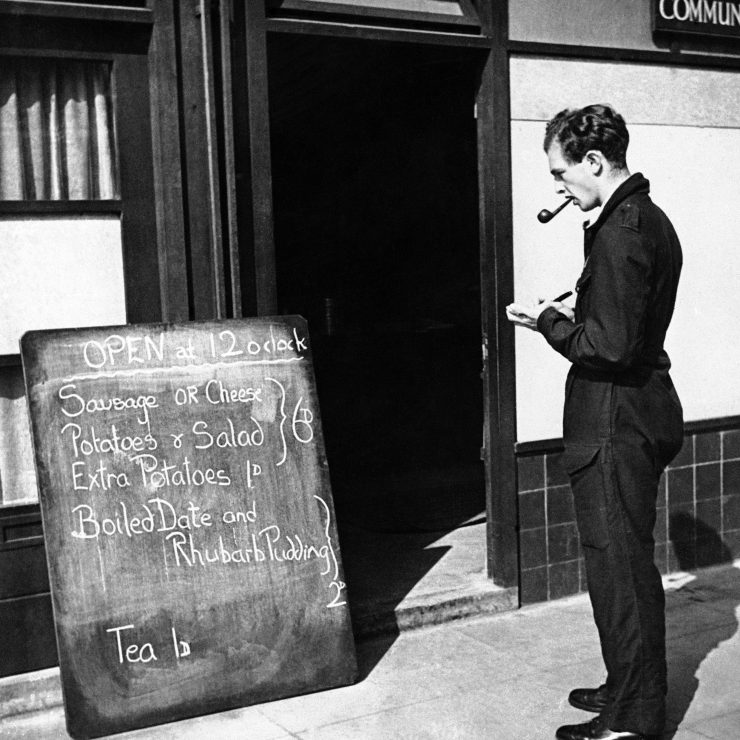 COMMUN
OPEN at 12 o clock
Sausage OR Cheese
Potatoes & Salad 6D
Extra Potatoes 1D
Boiled Date and
Rhubarb Pudding
2D
Tea 1D